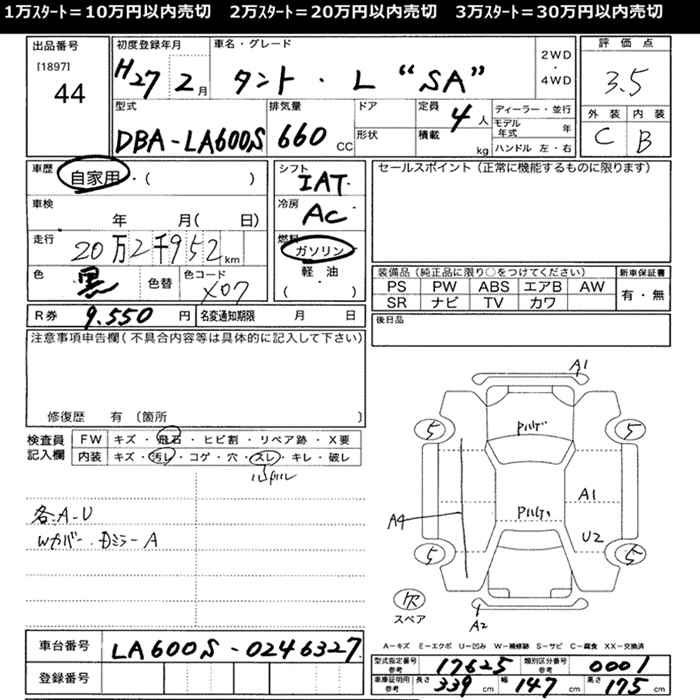 1万スタート＝10万円以内売切　2万スタート＝20万円以内売切　3万スタート＝30万円以内売切
出品番号 [1897] 44
初度登録年月 H27 2月
車名・グレード タント・L “SA”
2WD・4WD
評価点 3.5
外装 C 内装 B
型式 DBA-LA600S
排気量 660 CC
ドア 形状
定員 4人 積載 kg
ディーラー・並行
モデル年式 年
ハンドル 左・右
車歴 自家用・( )
シフト IAT
セールスポイント（正常に機能するものに限ります）
車検 年 月( 日)
冷房 AC
走行 20万2千952km
燃料 ガソリン
軽・油
( )
色 黒 色替
色コード X07
装備品（純正品に限り○をつけてください）
新車保証書
PS PW ABS エアB AW
有・無
SR ナビ TV カワ
R券 9.550 円 名変通知期限 月 日
後日品
注意事項申告欄（不具合内容等は具体的に記入して下さい）
修復歴 有 〔箇所 〕
検査員記入欄
FW キズ・飛石・ヒビ割・リペア跡・X要
内装 キズ・汚レ・コゲ・穴・スレ・キレ・破レ
各A-U
Wカバー・Dミラー A
A1
5 5
A4
A1
U2
5 5
欠
スペア
A2
A－キズ E－エクボ U－凹み W－補修跡 S－サビ C－腐食 XX－交換済
車台番号 LA600S-0246327
登録番号
型式指定番号 参考 17625 類別区分番号 参考 0001
車庫証明用 参考 長さ 339 cm 幅 147 cm 高さ 175 cm